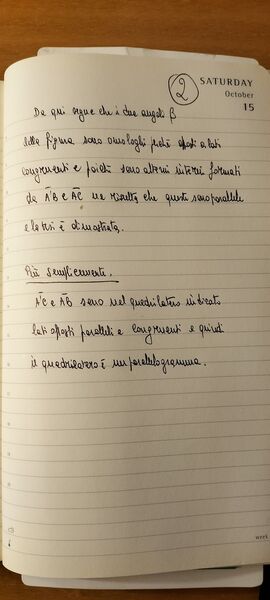 2
SATURDAY
October
15
Da qui segue che i due angoli β
della figura sono omologhi perché opposti a lati
congruenti e poiché sono alterni interni formati
da A'B e AC' ne risulta che questi sono paralleli
e la tesi è dimostrata.
Più semplicemente.
A'C e A'B sono nel quadrilatero indicato
lati opposti paralleli e congruenti e quindi
il quadrilatero è un parallelogramma.
week